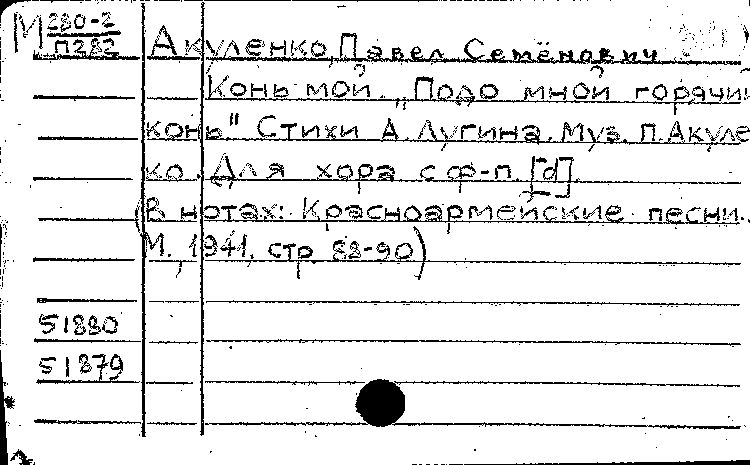 М 280-2
П282
Акуленко, Павел Семёнович
Конь мой. „Подо мной горячий
конь." Стихи А. Лугина. Муз. П. Акулен
ко. Для хора с ф-п. [d].
(В нотах: Красноармейские песни.
М., 1941, стр. 88-90)
51880
51879